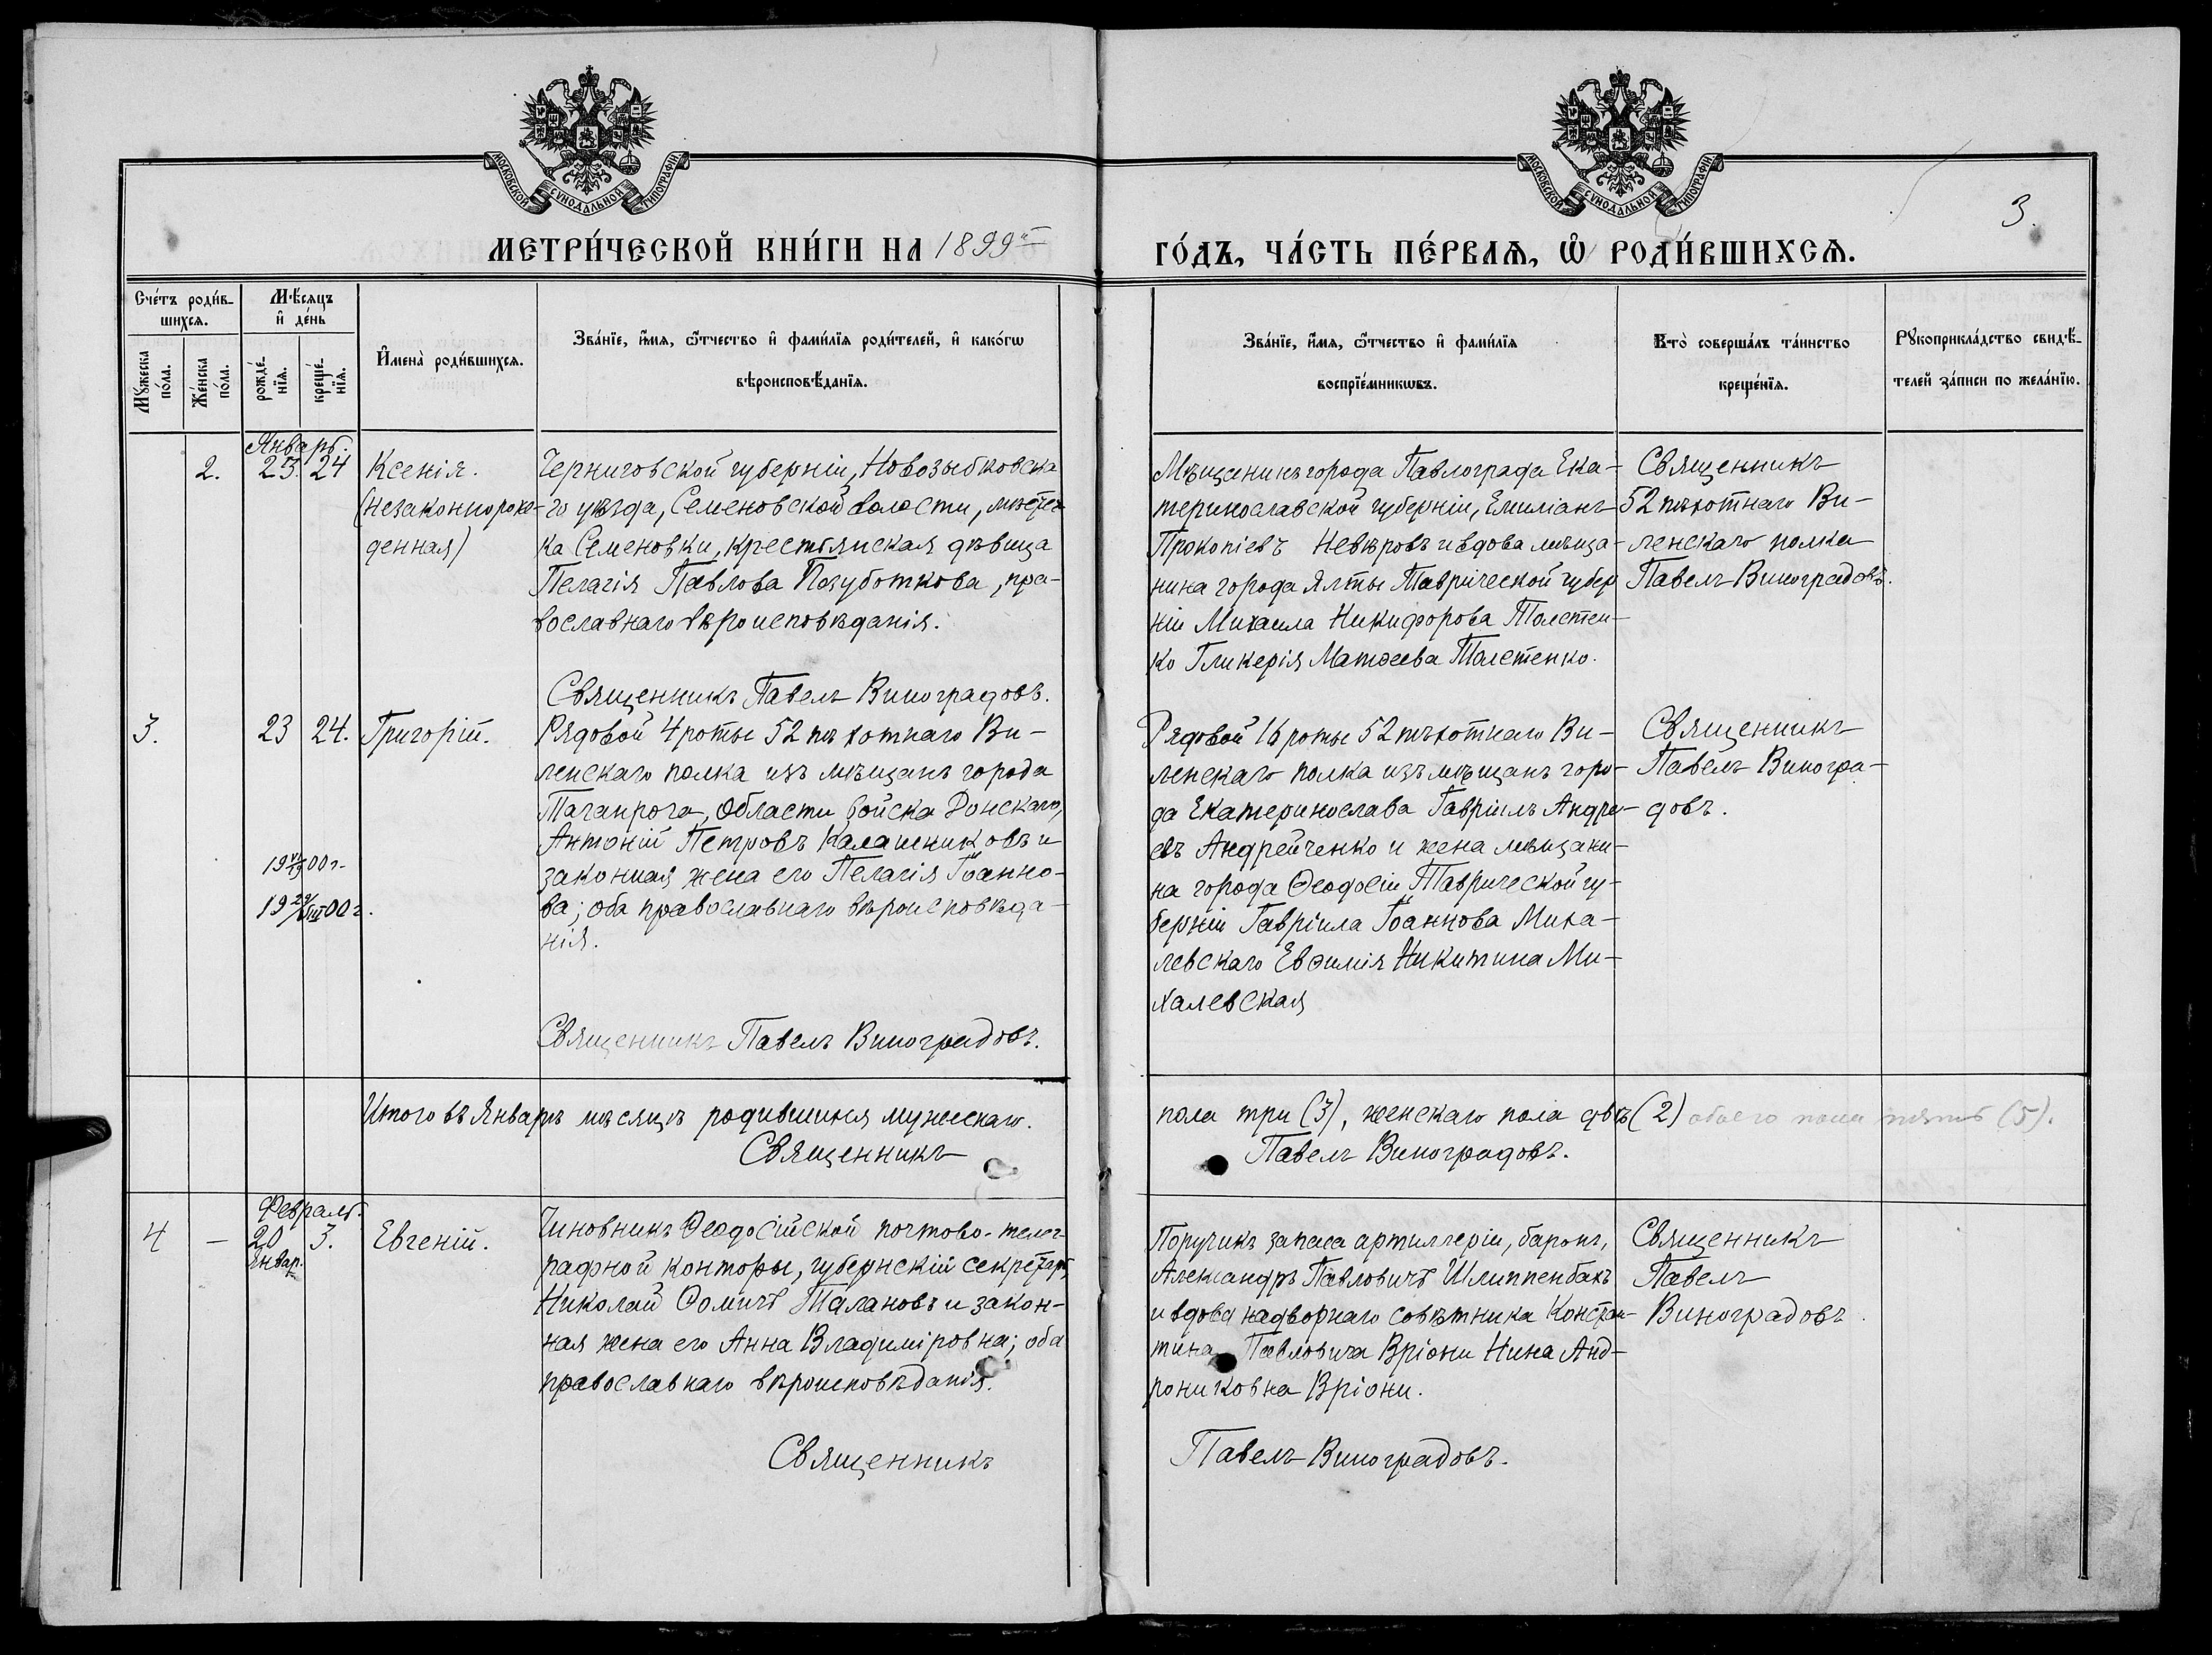 МОСКОВСКОЙ СУНОДАЛЬНОЙ ТИПОГРАФІИ
МОСКОВСКОЙ СУНОДАЛЬНОЙ ТИПОГРАФІИ
3.
МЕТРИ́ЧЕСКОЙ КНИ́ГИ НА 1899й
ГО́ДЪ, ЧА́СТЬ ПЕ́РВАѦ, Ѿ РОДИ́ВШИХСѦ.
Сче́тъ роди́в-
шихсѧ.
Мѣ́сяцъ
и҆ де́нь
Мꙋ́жеска
по́ла.
Же́нска
по́ла.
рожде́-
нїѧ.
креще́-
нїѧ.
И҆мена̀ роди́вшихсѧ.
Зва́нїе, и҆́мѧ, ѻ҆́тчество и҆ фами́лїѧ роди́телей, и҆ како́гѡ
вѣроисповѣ́данїѧ.
Зва́нїе, и҆́мѧ, ѻ҆́тчество и҆ фами́лїѧ
воспрїе́мникѡвъ.
Кто̀ соверша́лъ та́инство
креще́нїѧ.
Рꙋкоприкла́дство свидѣ́-
телей за́писи по жела́нїю.
Январь.
2. 23. 24 Ксенія.
(незаконнорож-
денная)
Черниговской губерніи, Новозыбковска-
го уѣзда, Семеновской волости, мѣстеч-
ка Семеновки, крестьянская дѣвица
Пелагія Павлова Погуботкова, пра-
вославнаго вѣроисповѣданія.
Священникъ Павелъ Виноградовъ.
Мѣщанинъ города Павлограда Ека-
теринославской губерніи, Емиліанъ
Прокопіевъ Невѣровъ и вдова мѣща-
нина города Ялты Таврической губер-
ніи Михаила Никифорова Толстен-
ко Гликерія Матѳеева Толстенко.
Священникъ
52 пѣхотнаго Ви-
ленскаго полка
Павелъ Виноградовъ.
3. 23 24. Григорій.
19 00 г.
19 00 г.
Рядовой 4 роты 52 пѣхотнаго Ви-
ленскаго полка изъ мѣщанъ города
Таганрога, Области войска Донскаго,
Антоній Петровъ Калашниковъ и
законная жена его Пелагія Іоанно-
ва; оба православнаго вѣроисповѣда-
нія.
Священникъ Павелъ Виноградовъ.
Рядовой 16 роты 52 пѣхотнаго Ви-
ленскаго полка изъ мѣщанъ горо-
да Екатеринослава Гавріилъ Андре-
евъ Андрейченко и жена мѣщани-
на города Ѳеодосіи Таврической гу-
берніи Гавріила Іоаннова Миха-
левскаго Евѳимія Никитина Ми-
халевская
Священникъ
Павелъ Виногра-
довъ.
Итого въ Январѣ мѣсяцѣ родившихся мужескаго.
пола три (3), женскаго пола двѣ (2) обоего пола пять (5).
Священникъ
Павелъ Виноградовъ.
Февраль.
4 – 20 3. Евгеній.
Январ.
Чиновникъ Ѳеодосійской почтово-телег-
рафной конторы, губернскій секретарь,
Николай Ѳомичъ Талановъ и закон-
ная жена его Анна Владиміровна; оба
православнаго вѣроисповѣданія.
Священникъ
Поручикъ запаса артиллеріи, баронъ,
Александръ Павловичъ Шлиппенбахъ
и вдова надворнаго совѣтника Констан-
тина Павловича Вріони Нина Анд-
рониковна Вріони.
Павелъ Виноградовъ.
Священникъ
Павелъ
Виноградовъ.